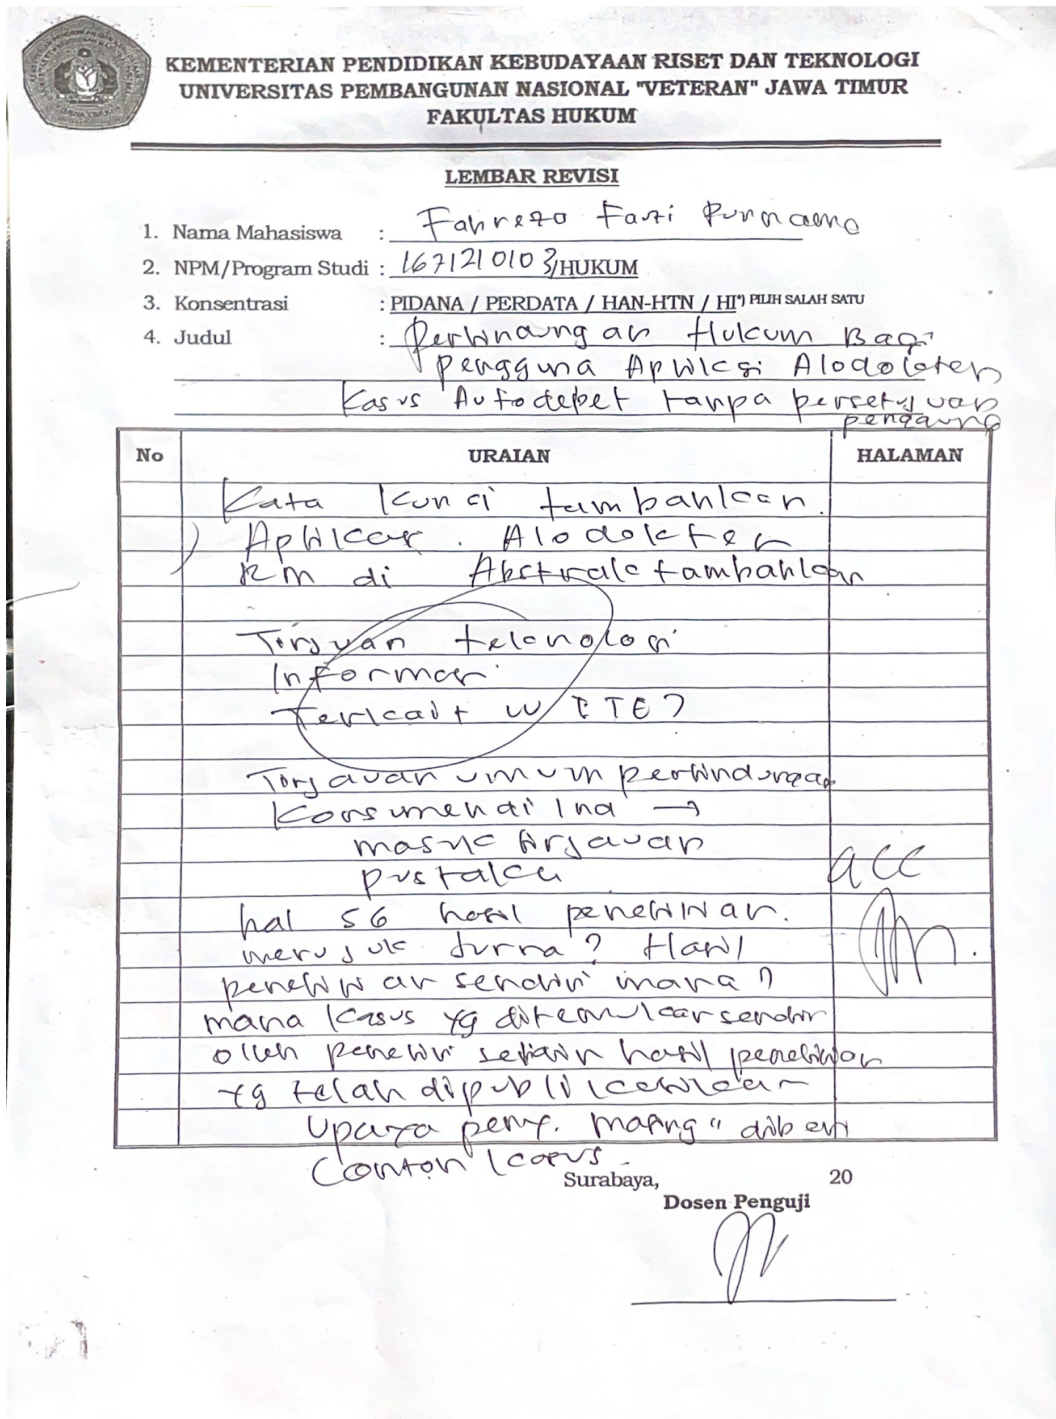 KEMENTERIAN PENDIDIKAN KEBUDAYAAN RISET DAN TEKNOLOGI
UNIVERSITAS PEMBANGUNAN NASIONAL "VETERAN" JAWA TIMUR
FAKULTAS HUKUM
LEMBAR REVISI
1. Nama Mahasiswa : Fahrezo Fauzi Purnama
2. NPM/Program Studi : 1671210103/HUKUM
3. Konsentrasi : PIDANA / PERDATA / HAN-HTN / HI*) PILIH SALAH SATU
4. Judul : Perlindungan Hukum Bagi
Pengguna Aplikasi Alodokter
Kasus Autodebet tanpa persetujuan
pengguna
No URAIAN HALAMAN
Kata kunci tambahkan
Aplikasi Alodokter
RM di Abstrak tambahkan
Tinjauan teknologi
Informasi
Terkait UU ITE?
Tinjauan umum perlindungan
Konsumen di Ind →
masuk tinjauan
pustaka
acc
hal 56 hasil penelitian.
merujuk Jurnal? Hasil
penelitian sendiri mana?
mana kasus yg ditemukan sendiri
oleh peneliti selain hasil penelitian
yg telah dipublikasikan
Upaya peny. masing" diberi
Contoh kasus
Surabaya, 20
Dosen Penguji